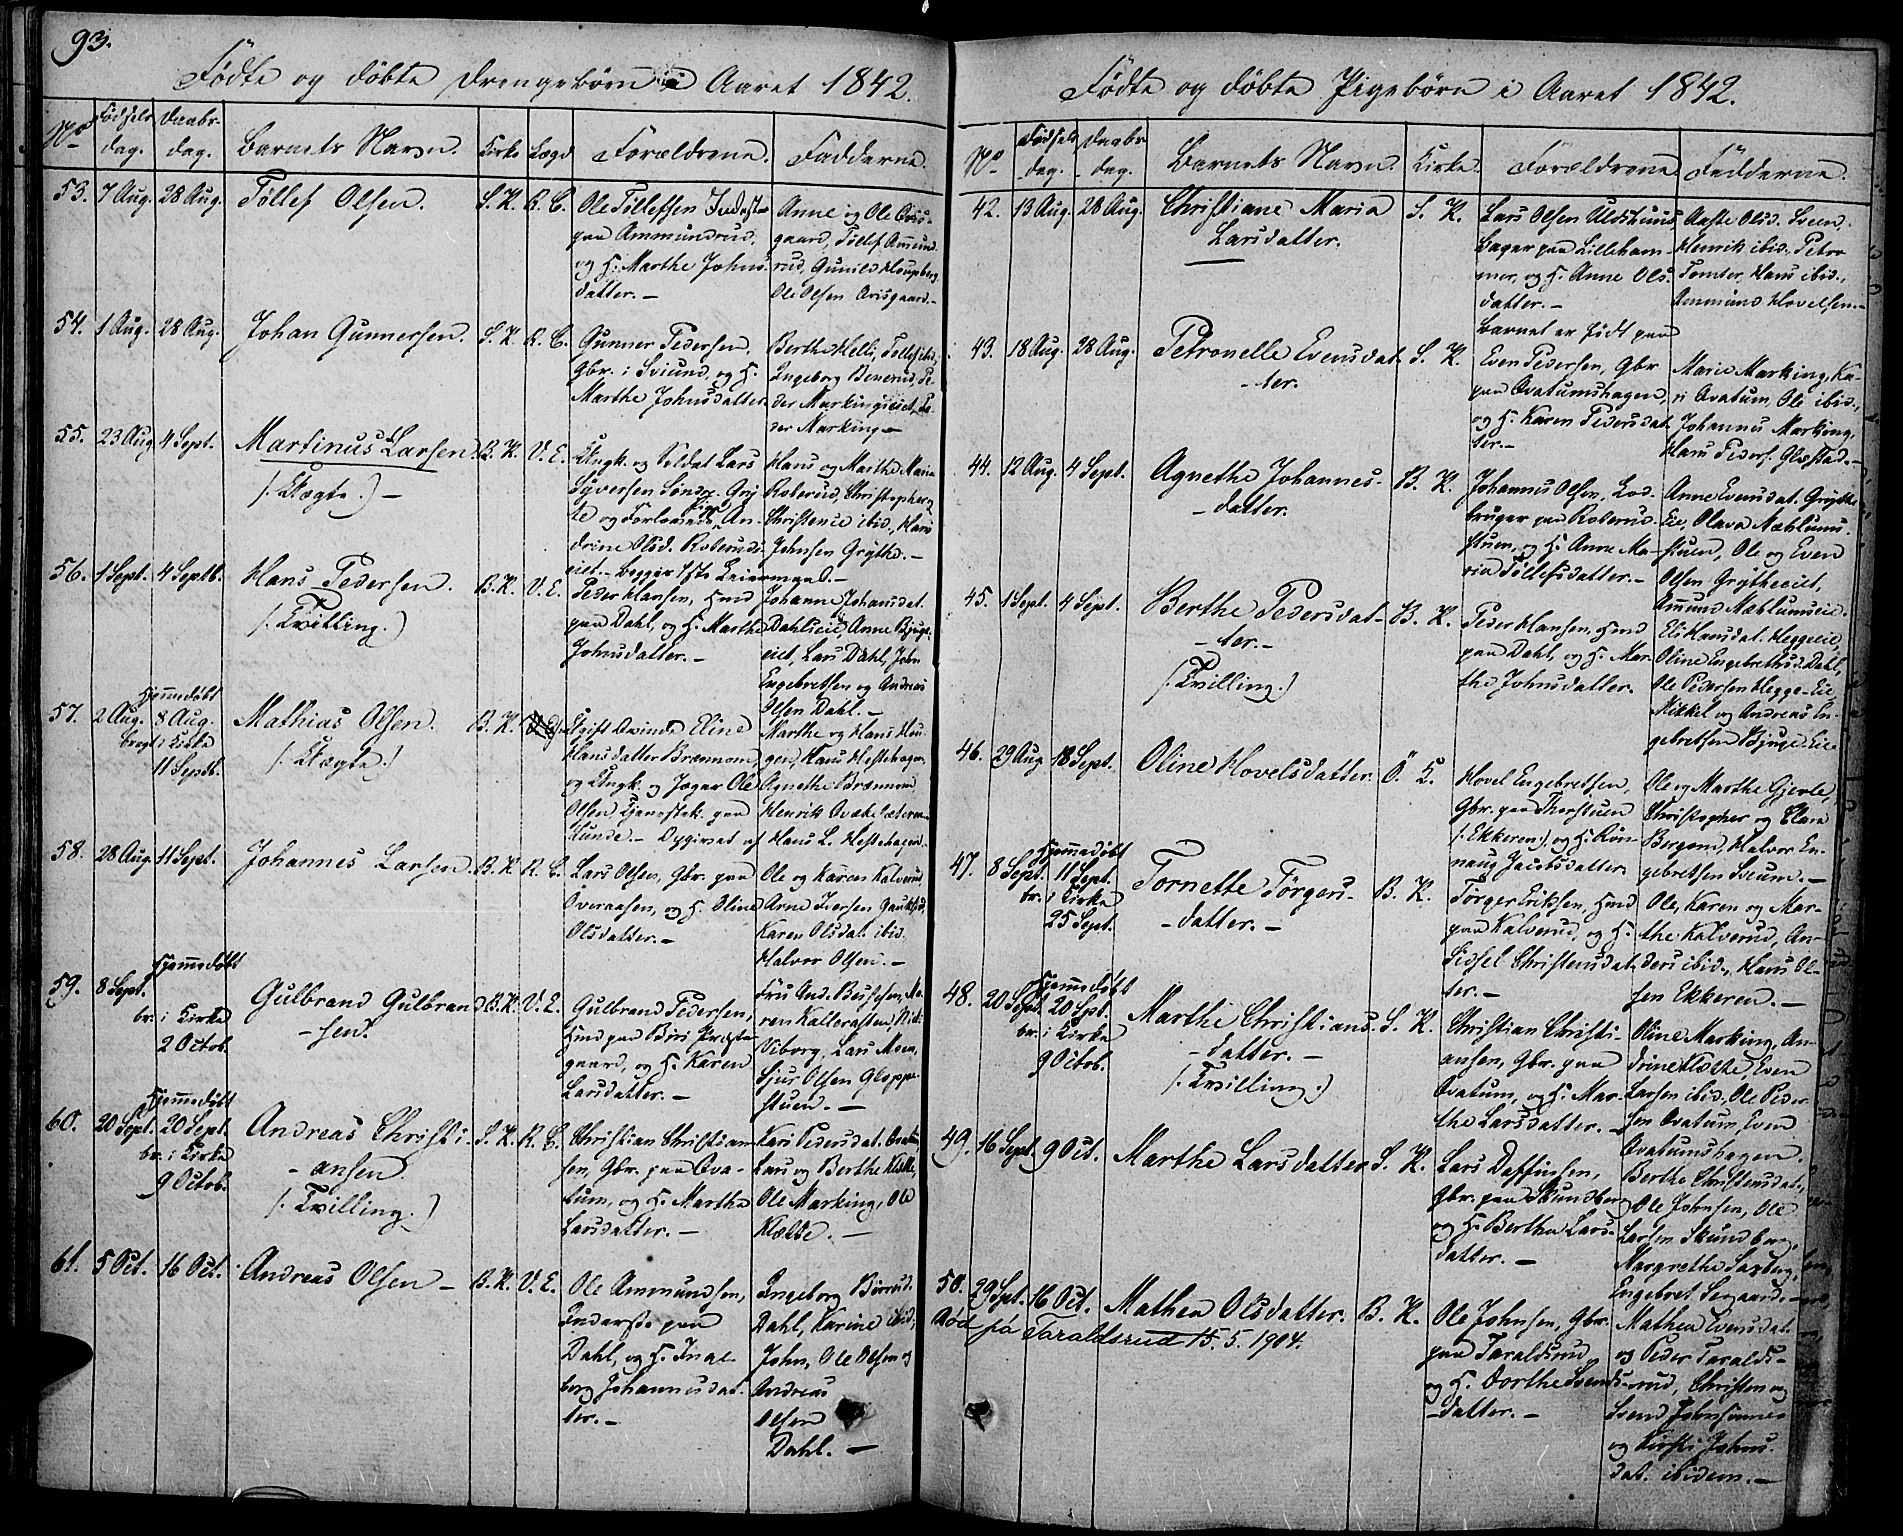 93.
Fødte og døbte Drengebørn i Aaret 1842.
No Fødsels dag. Daabs dag. Barnets Navn. Kirke Lægd Forældrene. Fadderne.
53. 7 Aug. 28 Aug. Tollef Olsen. S. K. R. C.
Ole Tollefsen Inderst
paa Ammundrud,
og H. Marthe Johns-
datter. —
Anne og Ole Ovis-
gaard, Tollef Ammund-
rud, Gunild
Ole Olsen Ovisgaard. —
54. 1 Aug. 28 Aug. Johan Gunnersen. S. K. R. C.
Gunner Pedersen,
Gbr. i Sviund, og H.
Marthe Johnsdatter.
Berthe Tollef ibid.
Ingeborg Pe-
der Markingseiet, Pe-
der Marking —
55. 23 Aug 4 Sept. Martinus Larsen
(: Uægte :) —
B. K. V. E.
Ungk. og Soldat Lars
Syversen Søndr. Gry-
te og Forlovede Pige An-
drine Olsd. Roberuds-
eiet. — Begges 1ste Leiermaal. —
Hans og Marthe Maria
Roberud, Christopher og
Christense ibid., Hans
Johnsen Grythe. —
56. 1 Sept. 4 Septb. Hans Pedersen.
(: Tvilling. :)
B. K. V. E.
Peder Hansen, Hmd
paa Dahl, og H. Marthe
Johnsdatter. —
Johanne Johansdat.
Dahlseie, Anne Bjuge-
eiet, Lars Dahl, John
Engebretsen og Andreas
Olsen Dahl. —
57. 2 Aug. hjemmedøbt 8 Aug.
bragt i Kirke
11 Septb.
Mathias Olsen.
(: Uægte :)
B. K.
Ugift Qvinde Eline
Hansdatter Brænnom,
og Ungk. og Jæger Ole
Olsen paa
Lunde. — Opgivet af Hans L. Heftehagen.
Marthe og Hans Hau-
gen, Hans Heftehagen,
Agnethe Brænnom,
Henrik
58. 28 Aug. 11 Sept. Johannes Larsen. B. K. R. C.
Lars Olsen, Gbr. paa
Overaasen, og H. Oline
Olsdatter. —
Ole og Karen Kalverud
Arne Iversen
Karen Olsdat. ibid.
Halvor Olsen. —
59. 8 Sept. hjemmedøbt
br. i Kirke
2 Octob.
Gulbrand Gulbrand
- sen.
B. K. V. E.
Gulbrand Pedersen,
Hmd paa Biri Præste-
gaard, og H. Karen
Larsdatter. —
Fru And. Ma-
ren
Viborg, Lars Moen,
Sjur Olsen Gloppe-
stuen. —
60. 20 Sept. hjemmedøbt 20 Sept.
br. i Kirke
9 Octob.
Andreas Christi-
- ansen.
(: Tvilling. :)
S. K. R. C.
Christian Christian-
sen, Gbr. paa Ova-
tum, og H. Marthe
Larsdatter. —
Kari Pedersdat. Ovatum,
Lars og Berthe
Ole Marking, Ole
Klette. —
61. 5 Oct. 16 Oct. Andreas Olsen — B. K. V. E.
Ole Ammundsen,
Inderste paa
Dahl, og H. Inge-
borg Johannesdat-
ter. —
Ingeborg
Dahl, Karine ibid,
John, Ole Olsen og
Andreas
Olsen
Dahl. —
Fødte og døbte Pigebørn i Aaret 1842.
No. Fødsels dag. Daabs dag. Barnets Navn. Kirke. Forældrene. Fadderne.
42. 13 Aug. 28 Aug. Christiane Maria
Larsdatter.
S. K.
Lars Olsen
Bager paa Lilleham-
mer, og H. Anne Ols-
datter. —
Barnet er født paa
Aaste Olsd. Svien,
Henrik ibid., Petro
Tomter, Hans ibid.,
Ammund Hovelsen. —
43. 18 Aug. 28 Aug. Petronelle Evensdat-
- ter.
S. K.
Even Pedersen, Gbr
paa Ovatumshagen,
og H. Karen Pedersdat-
ter. —
Marie Marking, Ka-
ri Ovatum, Ole ibid.,
Johannes Marking,
Hans Peders. Glæstad. —
44. 12 Aug. 4 Sept. Agnethe Johannes-
- datter.
B. K.
Johannes Olsen, Lod-
bruger paa Roberud-
stuen, og H. Anne Ma-
ria Tollefsdatter. —
Anne Evensdat. Grythe-
Eie, Olava Mæhlums-
stuen, Ole og Even
Olsen Grytheeiet,
Amund Mæhlumseie.
45. 1 Sept. 4 Sept. Berthe Pedersdat-
- ter. —
(: Tvilling. :)
B. K.
Peder Hansen, Hmd
paa Dahl, og H. Mar-
the Johnsdatter.
Eli Hansdat. Heggeeie,
Oline Engebrethsd. Dahl,
Ole Pedersen Hegge-Eie
Mikkel og Andreas En-
gebretsen Bjuge-Eie
46. 29 Aug 18 Sept. Oline Hovelsdatter. Ö. L.
Hovel Engebretsen,
Gbr. paa Thorstuen
(: Ekkeren), og H. Røn-
naug Jacobsdatter
Ole og Marthe Gjevle,
Christopher og Clara
Bergom, Halvor En-
gebretsen Sveum. —
47. 8 Sept. hjemmedøbt 11 Sept.
br. i Kirke
25 Sept.
Tornette Törgers-
- datter. —
B. K.
Törger Eriksen, Hmd
paa Kalverud, og H.
Sidsel Christensdat-
ter. —
Ole, Karen og Mar-
the Kalverud, An-
ders ibid., Hans Ol-
sen Ekkeren. —
48. 20 Sept. hjemmedøbt 20 Spt.
br. i Kirke
9 Octob.
Marthe Christians-
- datter. —
(: Tvilling. :)
S. K.
Christian Christi-
ansen, Gbr. paa
Ovatum, og H. Mar-
the Larsdatter. —
Oline Marking, An-
drine Klette, Even
Larsen ibid., Ole Peder-
sen Ovatum, Even
Ovatumshagen.
49. 16 Sept. 9 Oct. Marthe Larsdatter S. K.
Lars Daffinsen,
Gbr. paa Skundberg
og H. Berthe Lars-
datter. —
Berthe Christensdat.,
Ole Johnsen, Ole
Larsen Skundberg,
Margrethe Saxberg,
Engebret Segaard. —
50. 29 Spt. 16 Oct. Mathea Olsdatter. B. K.
Död på Taraldsrud 15. 5. 1904.
Ole Johnsen, Gbr.
paa Taraldsrud
og H. Dorthe Svends-
- datter. —
Mathea Evensdat.
og Peder Taralds-
rud, Christen og
Svend Johannes
og Kirsti Johns-
dat. ibidem. —